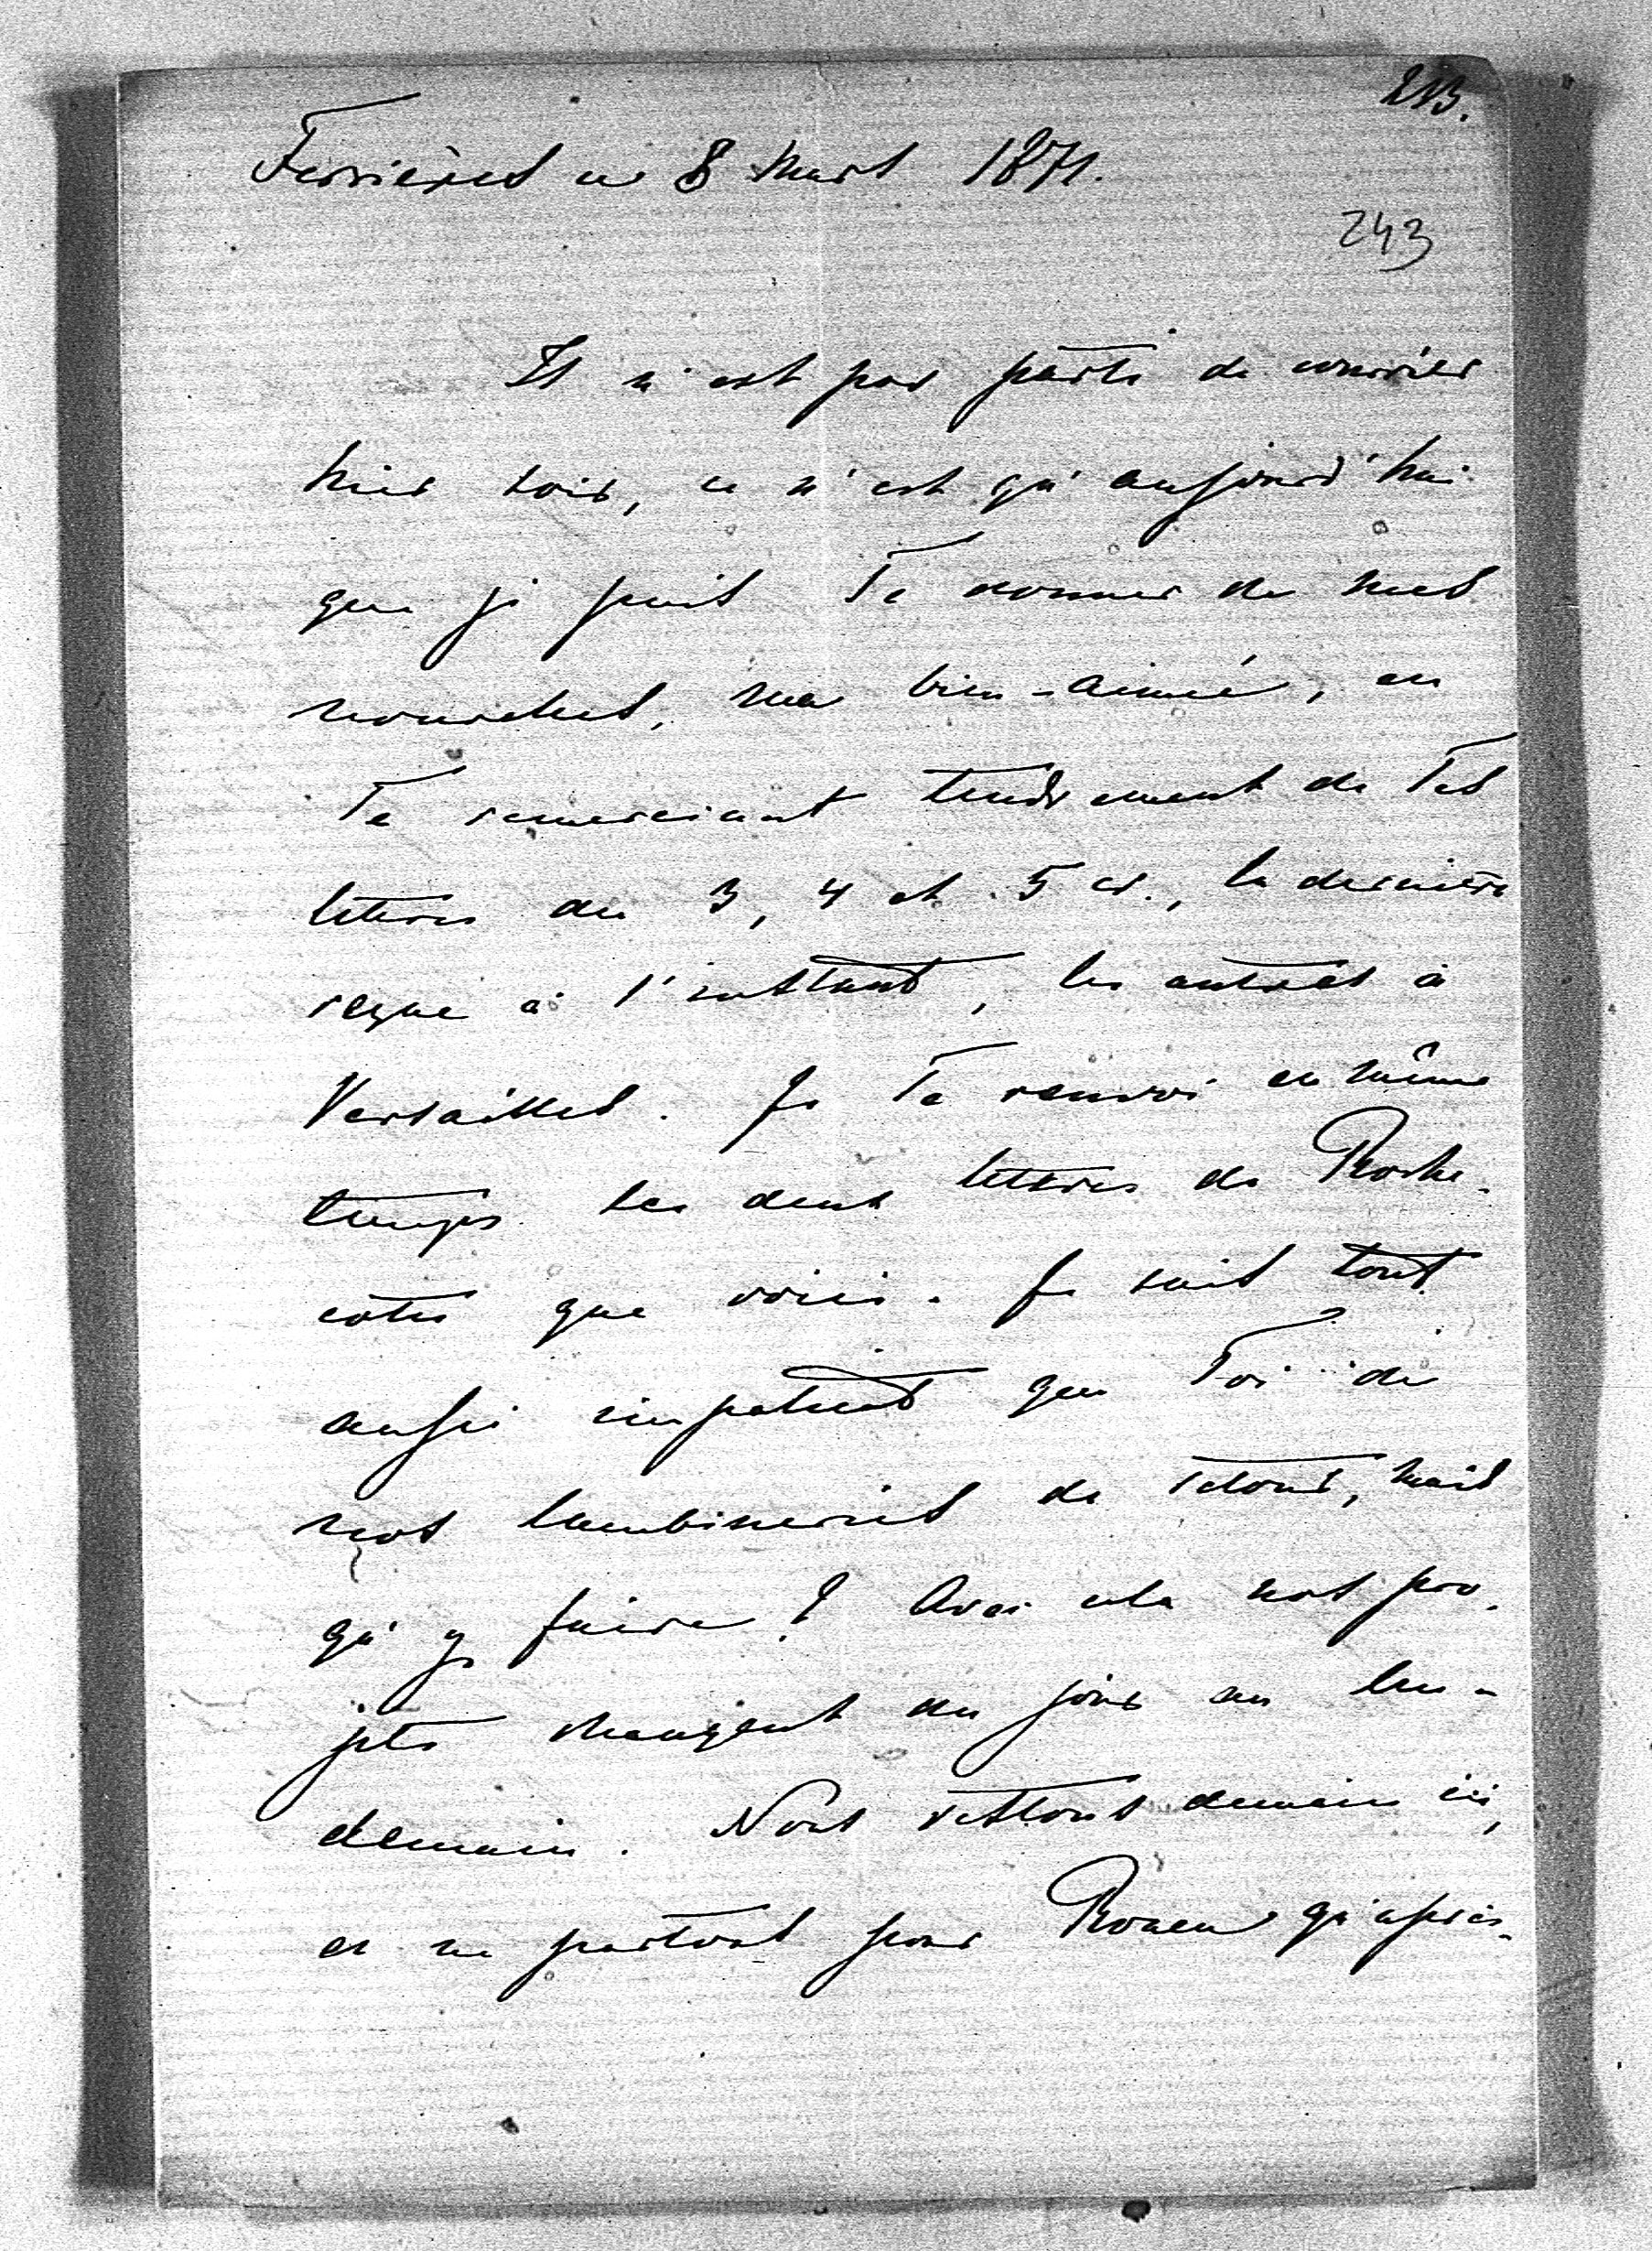 213.
Ferrières ce 8 Mars 1871.
243
Il n'est pas parti de courrier
hier soir, ce n'est qu'aujourd'hui
que je puis Te donner de mes
nouvelles, ma bien-aimée, en
Te remerciant tendrement de Tes
lettres du 3, 4 et 5 cr., la dernière
reçue à l'instant, les autres à
Versailles. Je Te renvoi en même
temps les deux lettres de
que voici. Je suis tout
aussi impatient que Toi de
nos lambineries de retour, mais
qu'y faire? Avec cela nos pro-
jets changent du jour au len-
demain. Nous restons demain ici,
et ne partons pour Rouen qu'après-